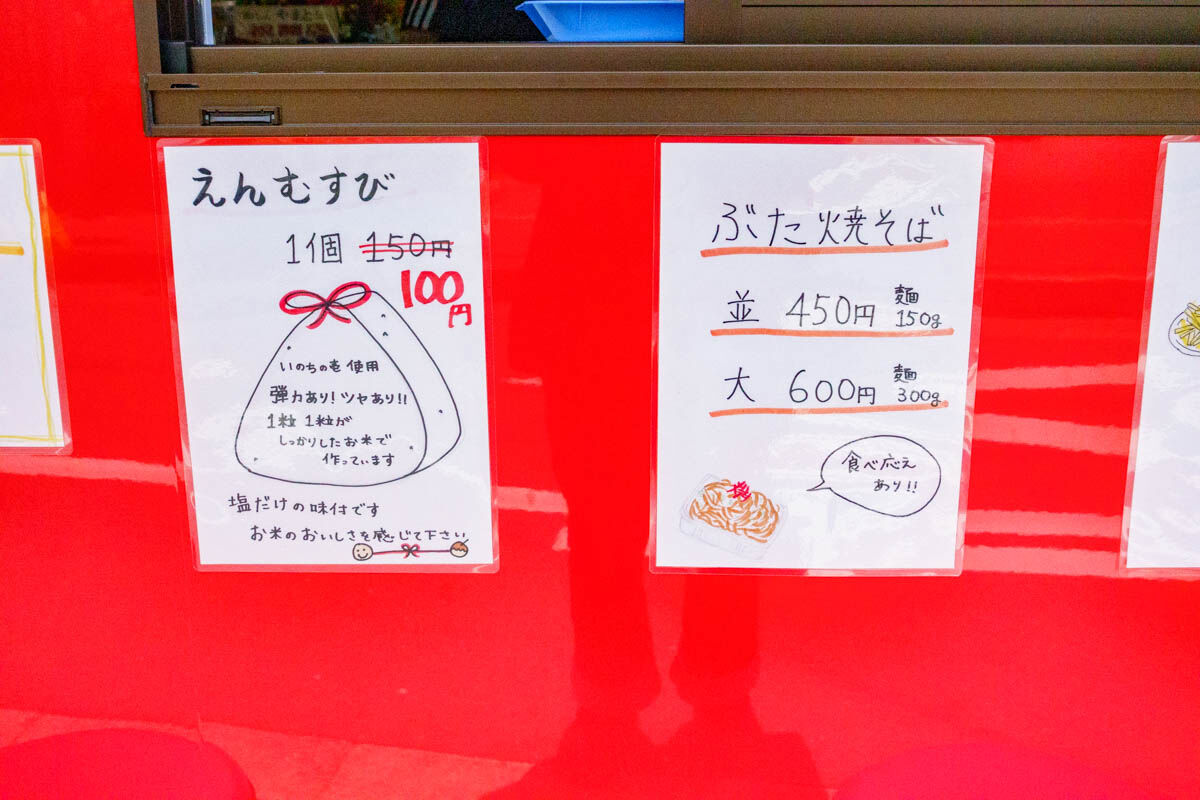 えんむすび
1個 150円
100円
いのちの壱使用
弾力あり!ツヤあり!!
1粒1粒が
しっかりしたお米で
作っています
塩だけの味付です
お米のおいしさを感じて下さい
ぶた焼そば
並 450円 麺150g
大 600円 麺300g
食べ応え
あり!!